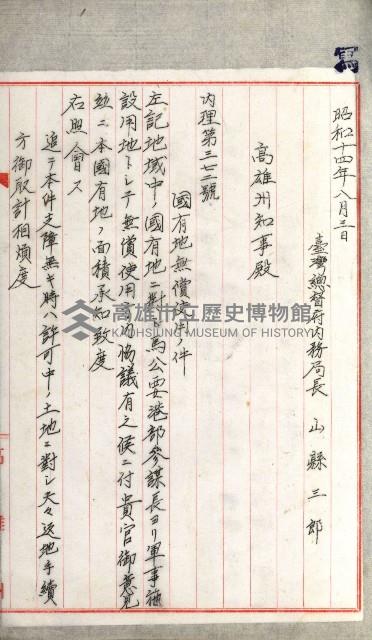 寫
昭和十四年八月三日
臺灣總督府內務局長 山縣三郎
高雄州知事殿
內理第三七二號
國有地無償使用ノ件
左記地域中ノ國有地ニ對シ馬公要港部參謀長ヨリ軍事施
設用地トシテ無償使用方協議有之候ニ付貴官御意見
竝ニ本國有地ノ面積承知致度
右照會ス
追テ本件支障無キ時ハ許可中ノ土地ニ對シ夫々返地手續
方御取計相煩度
高雄市立歷史博物館
KAOHSIUNG MUSEUM OF HISTORY
高雄州